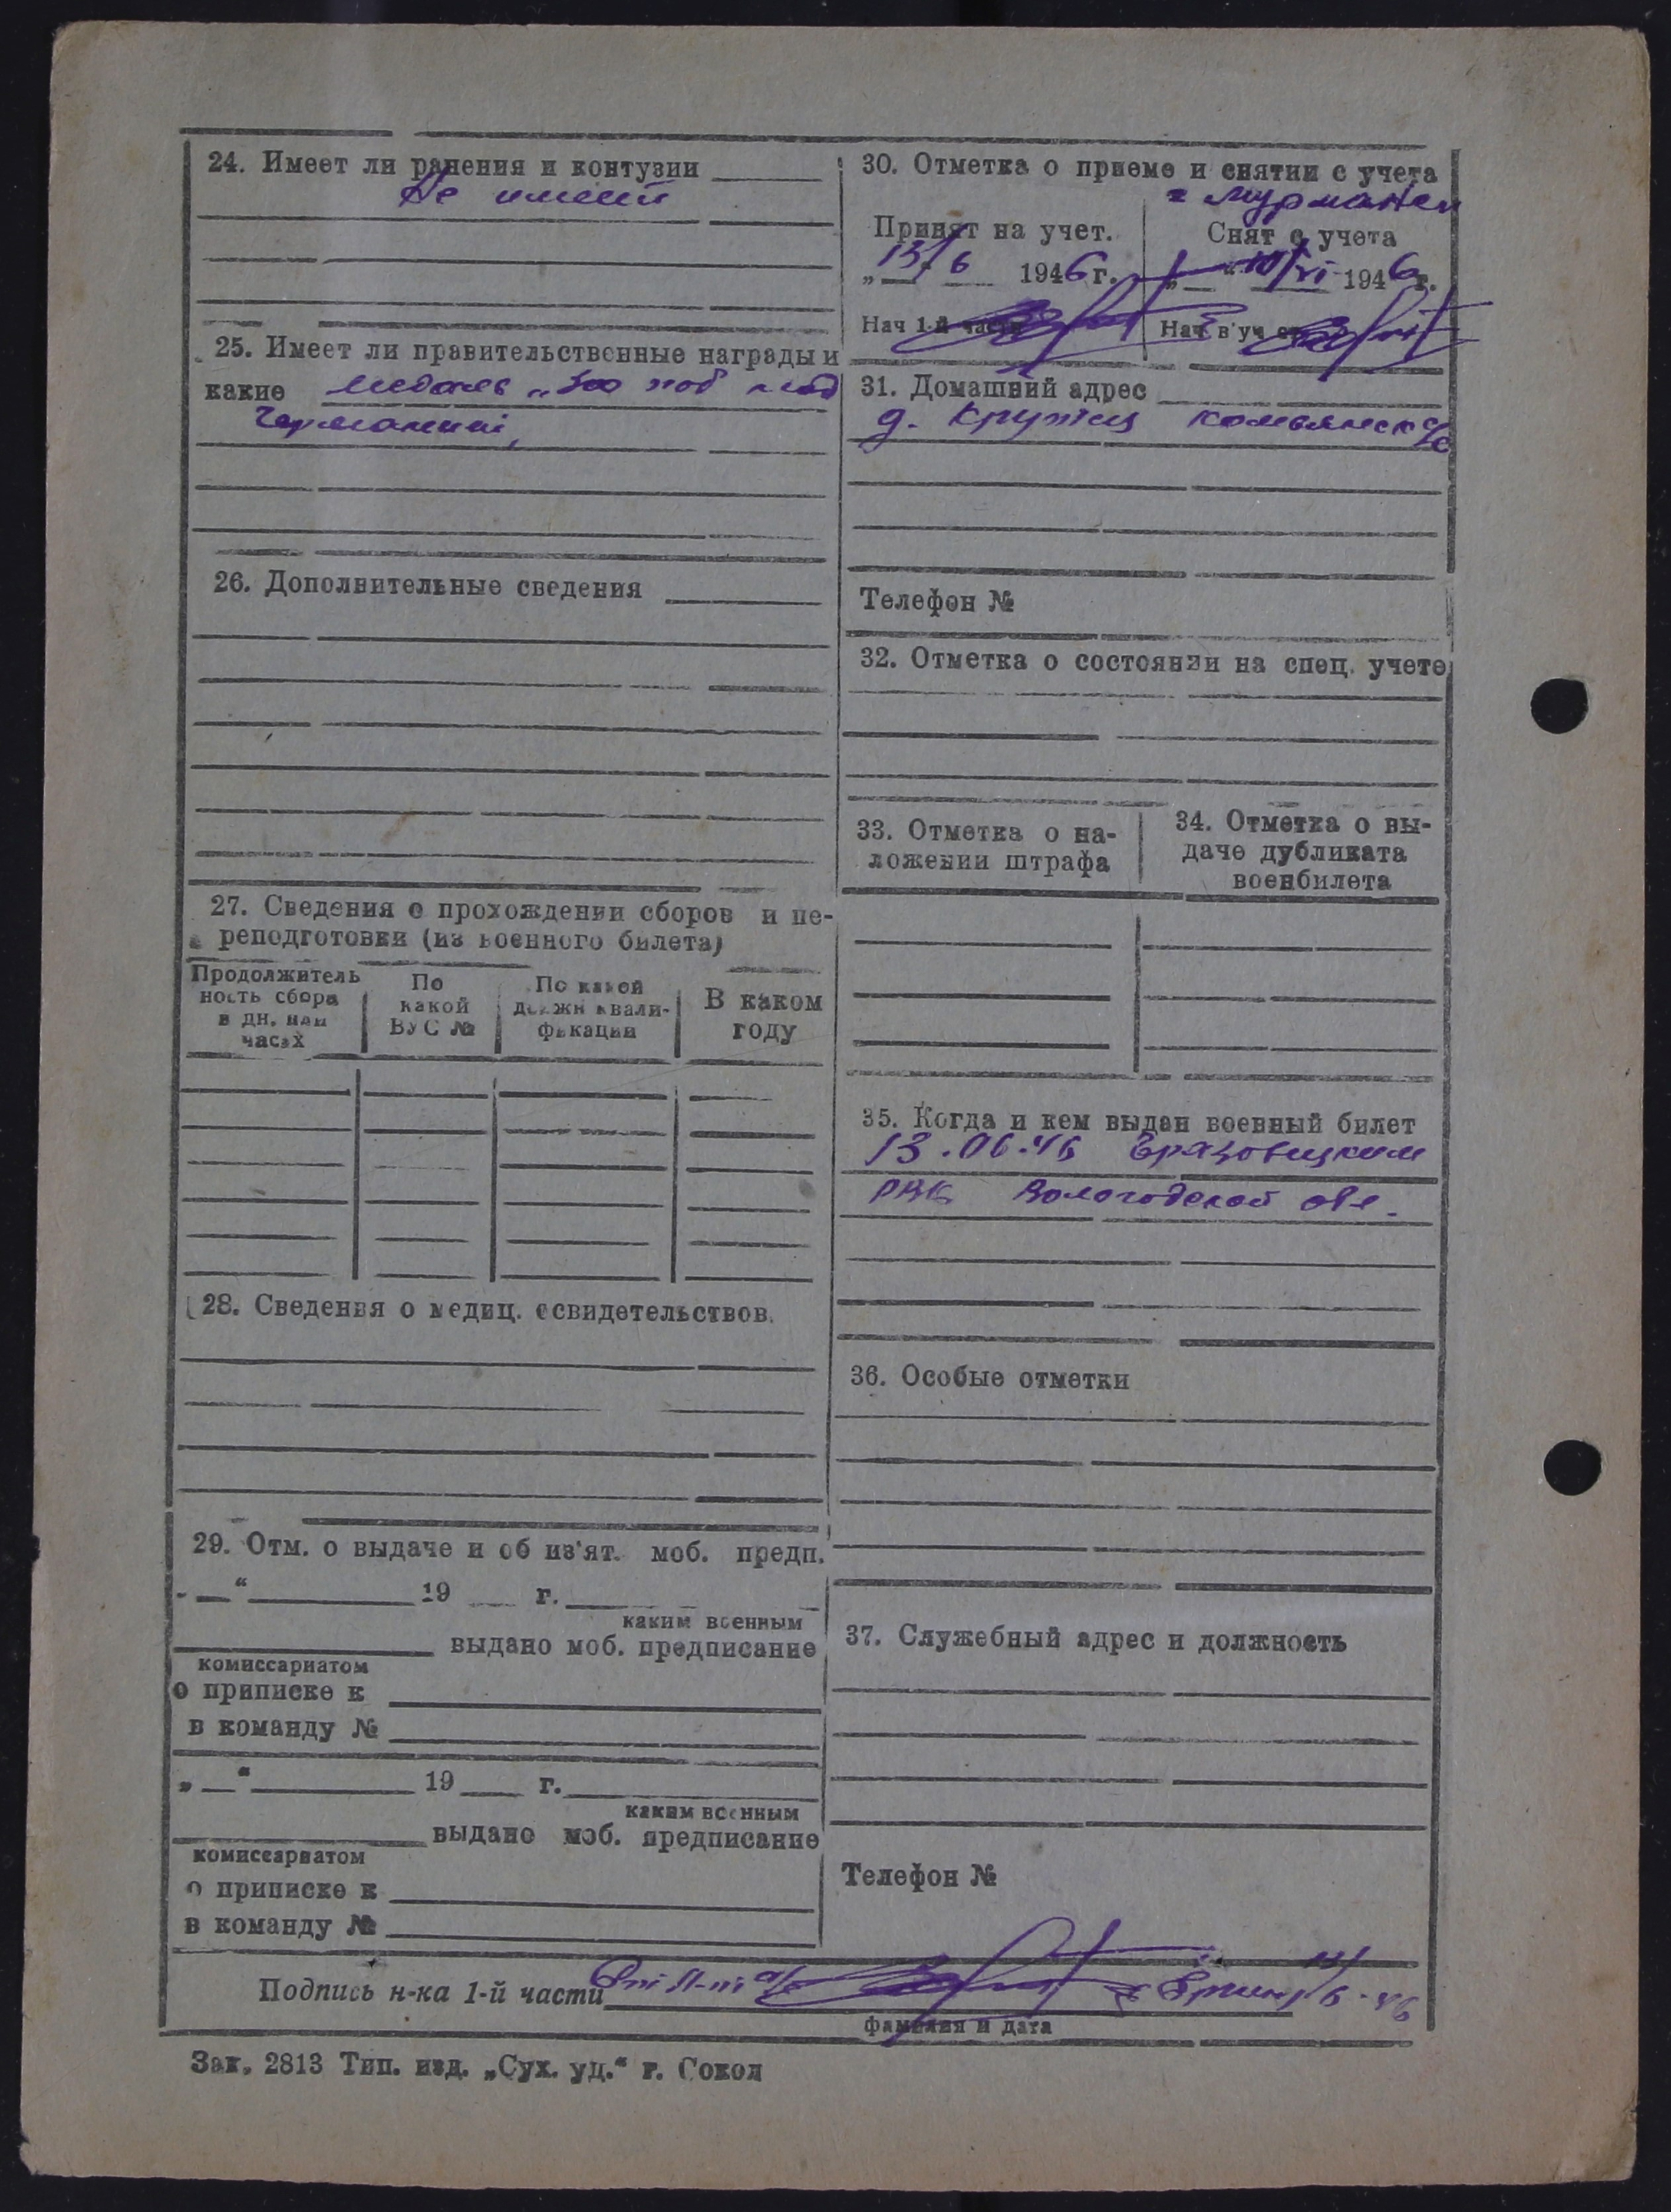 24. Имеет ли ранения и контузии
Не имеет
25. Имеет ли правительственные награды и
какие медаль „За поб над
Германией,
26. Дополнительные сведения
27. Сведения о прохождении сборов и пе-
реподготовки (из военного билета)
Продолжитель
ность сбора
в дн. или
часах
По
какой
ВУС №
По какой
должн квали-
фикации
В каком
году
28. Сведения о медиц. освидетельствов.
29. Отм. о выдаче и об из'ят. моб. предп.
19 г.
каким военным
выдано моб. предписание
комиссариатом
о приписке к
в команду №
„ “ 19 г.
каким военным
выдано моб. предписание
комиссариатом
о приписке к
в команду №
30. Отметка о приеме и снятии с учета
г Мурманск
Принят на учет.
„13/6 1946 г.
Нач 1-й части
Снят с учета
„ “ 10/VI 1946 г.
Нач в'уч ст
31. Домашний адрес
д. Кружец с/с
Телефон №
32. Отметка о состоянии на спец. учете
33. Отметка о на-
ложении штрафа
34. Отметка о вы-
даче дубликата
военбилета
35. Когда и кем выдан военный билет
13.06.46
РВК Вологодской обл.
36. Особые отметки
37. Служебный адрес и должность
Телефон №
Подпись н-ка 1-й части
фамилия и дата
Зак. 2813 Тип. изд. „Сух. уд.“ г. Сокол